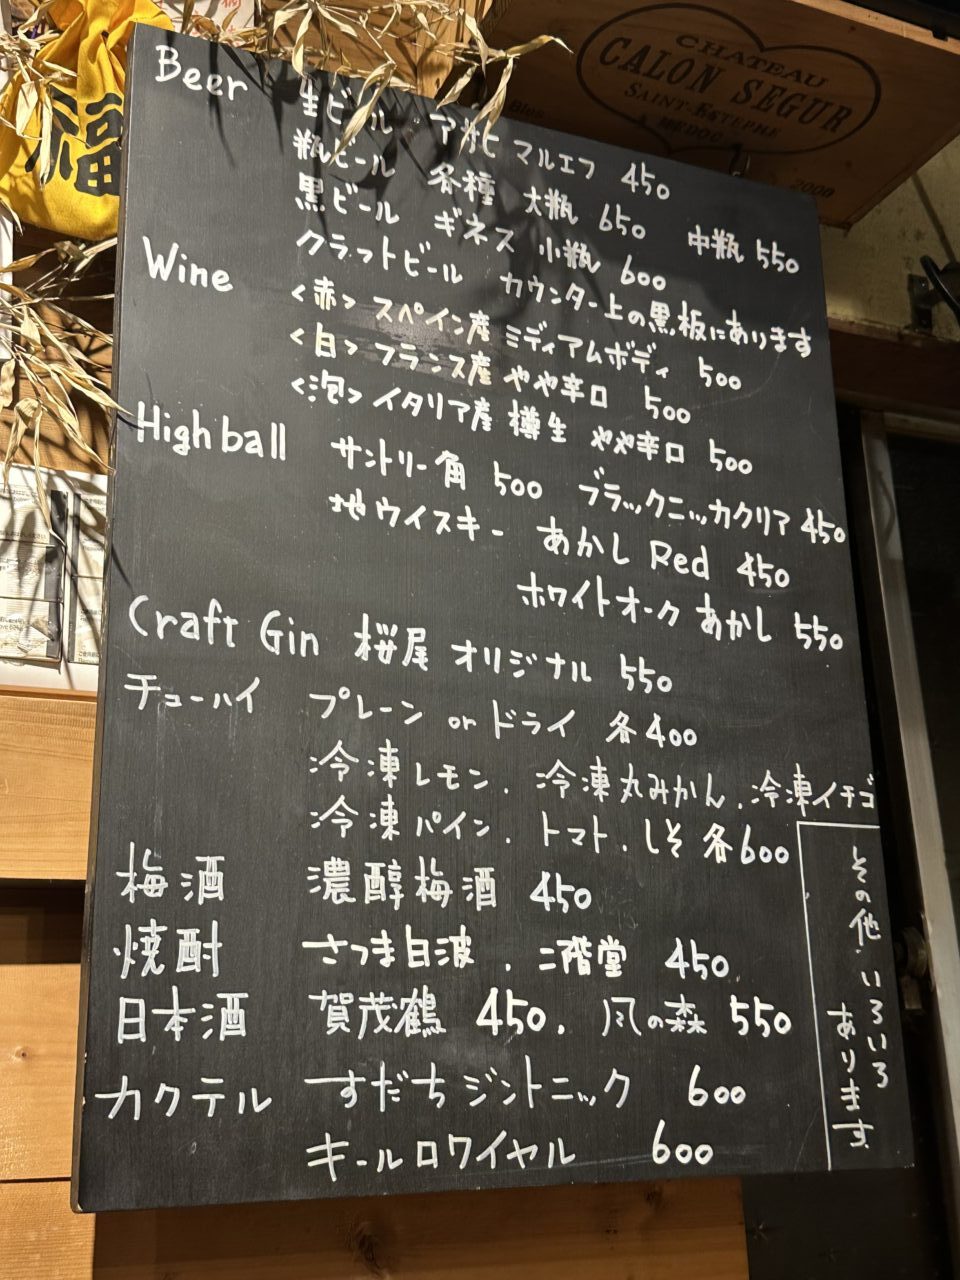 福
CHATEAU
CALON SEGUR
SAINT-ESTEPHE
MEDOC
2000
Beer 生ビール アサヒ マルエフ 450
瓶ビール 各種 大瓶 650 中瓶 550
黒ビール ギネス 小瓶 600
クラフトビール カウンター上の黒板にあります
Wine <赤> スペイン産 ミディアムボディ 500
<白> フランス産 やや辛口 500
<泡> イタリア産 樽生 やや辛口 500
Highball サントリー角 500 ブラックニッカクリア 450
地ウイスキー あかし Red 450
ホワイトオーク あかし 550
Craft Gin 桜尾 オリジナル 550
チューハイ プレーン or ドライ 各400
冷凍レモン. 冷凍丸みかん. 冷凍イチゴ
冷凍パイン. トマト. しそ 各600
梅酒 濃醇梅酒 450
焼酎 さつま白波. 二階堂 450
日本酒 賀茂鶴 450. 風の森 550
カクテル すだちジントニック 600
キールロワイヤル 600
その他 いろいろ
あります